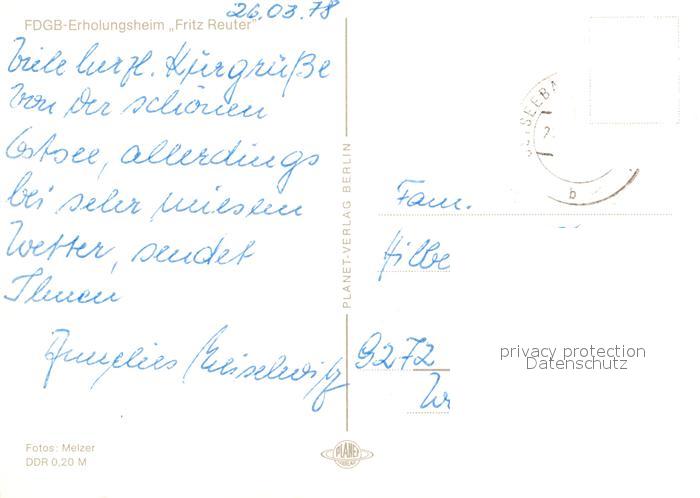 26.03.78
FDGB-Erholungsheim „Fritz Reuter“
Viele herzl. Kurgrüße
von der schönen
Ostsee, allerdings
bei sehr miesem
Wetter, sendet
Ihnen
Annelies
PLANET-VERLAG BERLIN
Fam.
Hilbe
9272
privacy protection
Datenschutz
SEEBA
b
Fotos: Melzer
DDR 0,20 M
PLANET
VERLAG